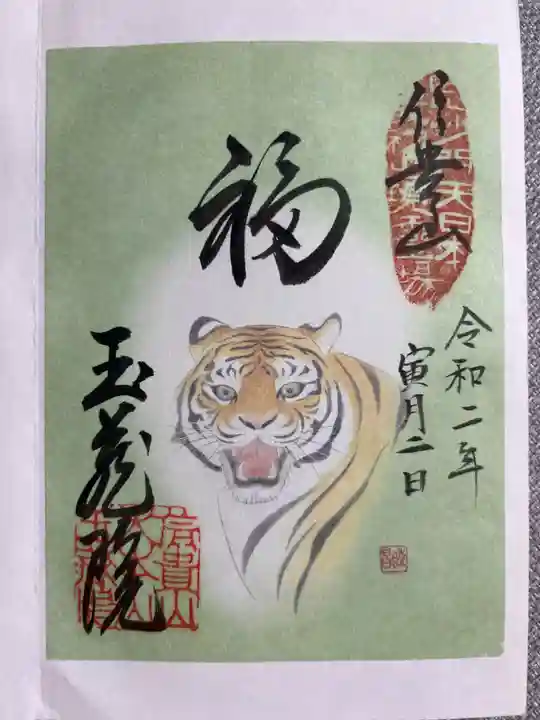 信貴山
令和二年
寅月二日
福
玉蔵院